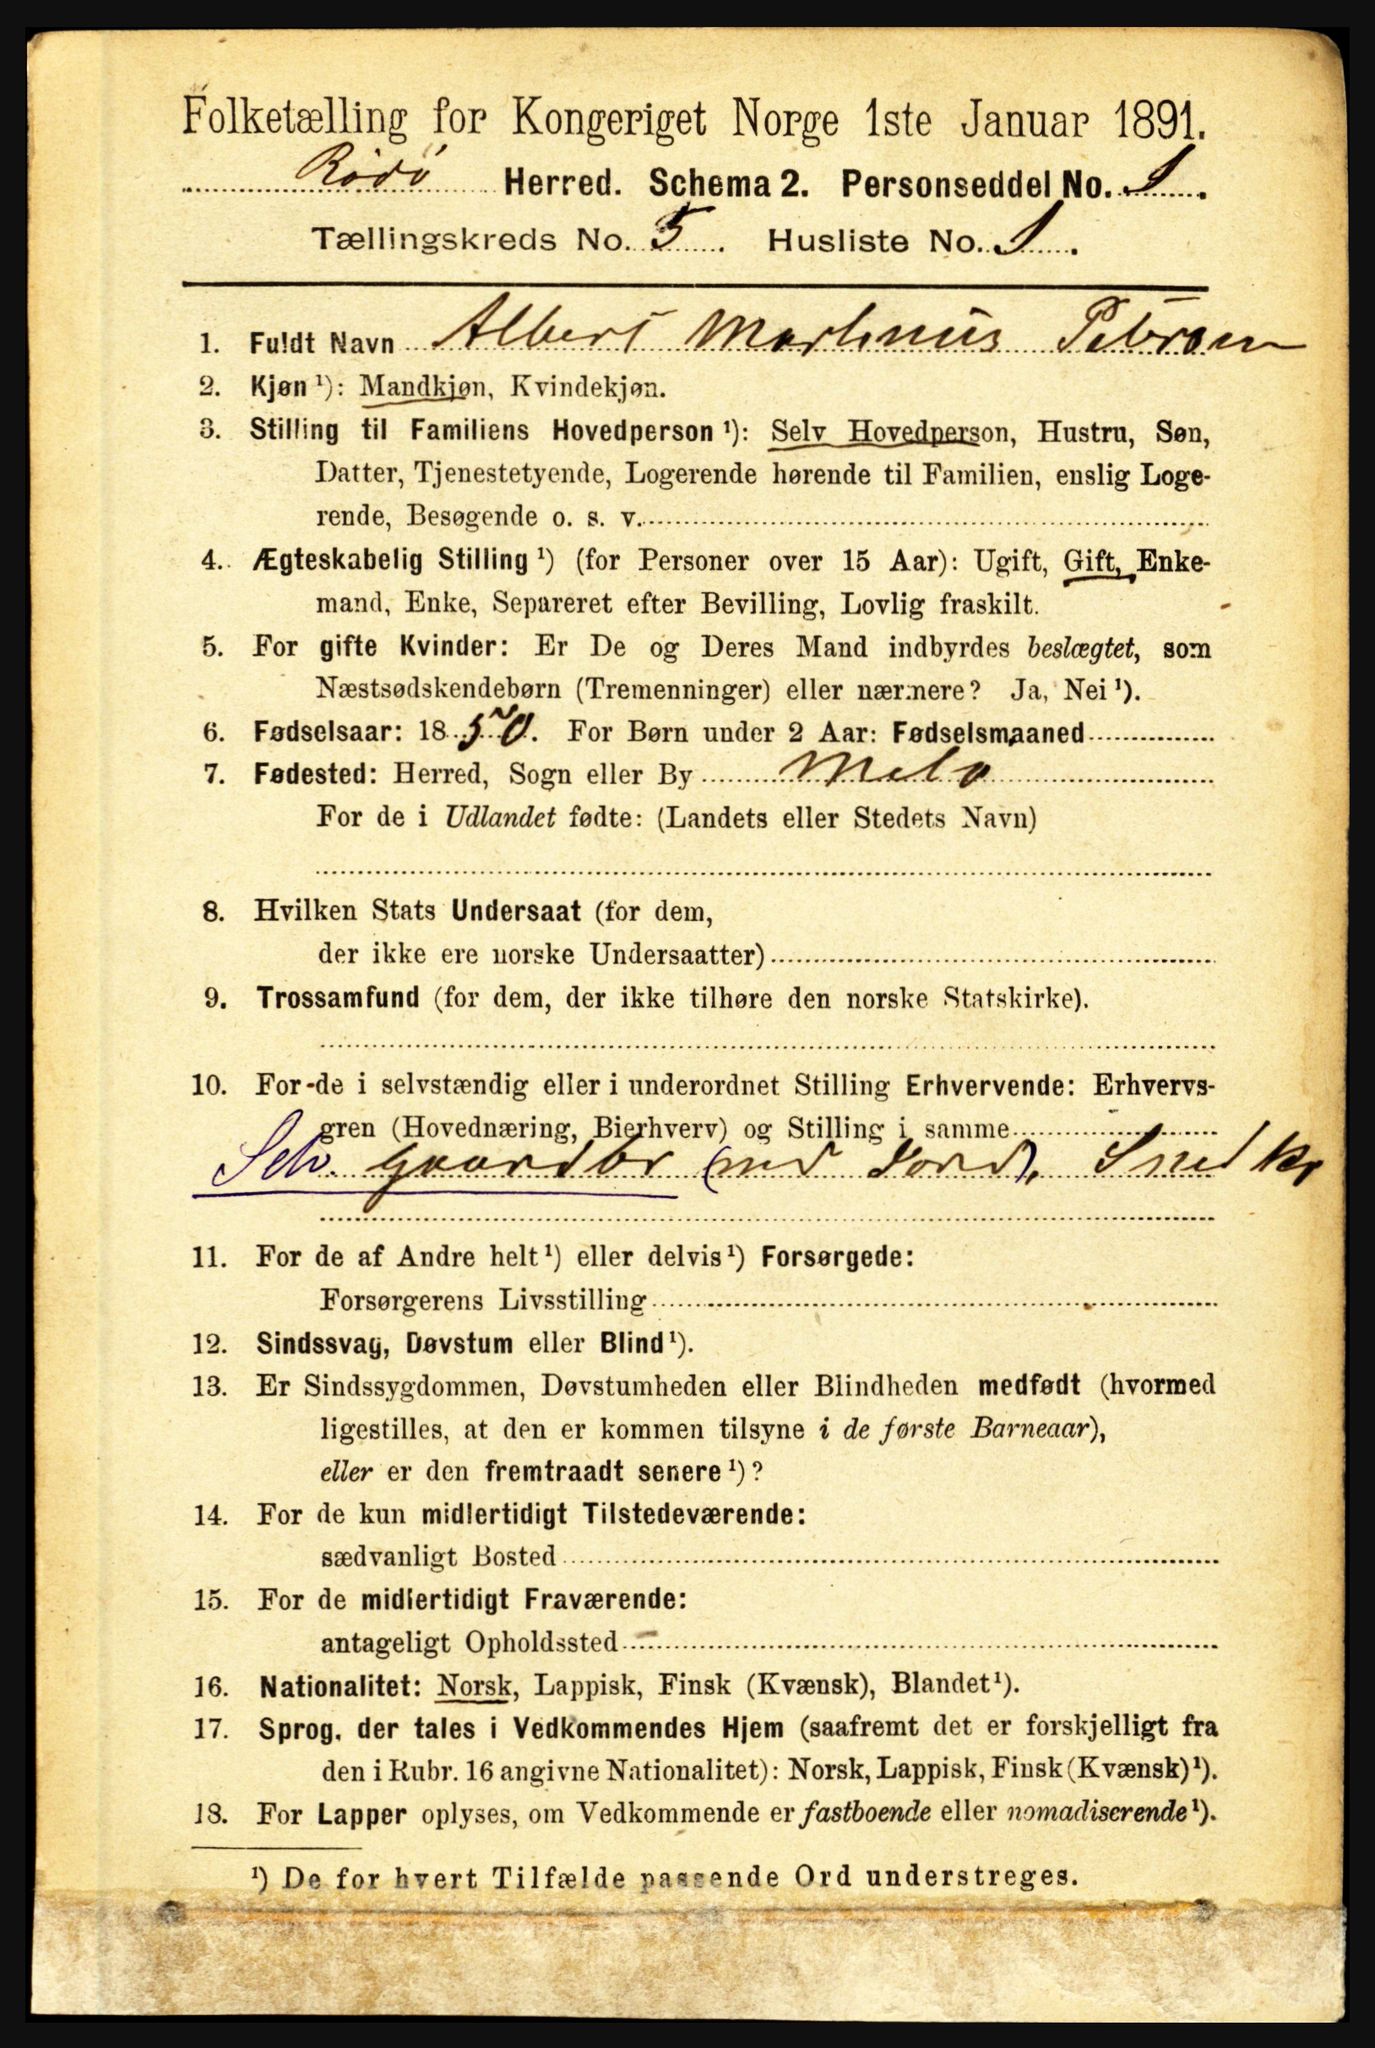 Folketælling for Kongeriget Norge 1ste Januar 1891.
Rödö Herred. Schema 2. Personseddel No. 1.
Tællingskreds No. 5. Husliste No. 1.
1. Fuldt Navn Albert Martinus Petersen
2. Kjøn ¹): Mandkjøn, Kvindekjøn.
3. Stilling til Familiens Hovedperson ¹): Selv Hovedperson, Hustru, Søn,
Datter, Tjenestetyende, Logerende hørende til Familien, enslig Loge-
rende, Besøgende o. s. v.
4. Ægteskabelig Stilling ¹) (for Personer over 15 Aar): Ugift, Gift, Enke-
mand, Enke, Separeret efter Bevilling, Lovlig fraskilt.
5. For gifte Kvinder: Er De og Deres Mand indbyrdes beslægtet, som
Næstsødskendebørn (Tremenninger) eller nærmere? Ja, Nei ¹).
6. Fødselsaar: 1850. For Børn under 2 Aar: Fødselsmaaned
7. Fødested: Herred, Sogn eller By Melø
For de i Udlandet fødte: (Landets eller Stedets Navn)
8. Hvilken Stats Undersaat (for dem,
der ikke ere norske Undersaatter)
9. Trossamfund (for dem, der ikke tilhøre den norske Statskirke).
10. For de i selvstændig eller i underordnet Stilling Erhvervende: Erhvervs-
gren (Hovednæring, Bierhverv) og Stilling i samme
Selv. gaardbr (med Jord), Snedkr
11. For de af Andre helt ¹) eller delvis ¹) Forsørgede:
Forsørgerens Livsstilling
12. Sindssvag, Døvstum eller Blind ¹).
13. Er Sindssygdommen, Døvstumheden eller Blindheden medfødt (hvormed
ligestilles, at den er kommen tilsyne i de første Barneaar),
eller er den fremtraadt senere ¹)?
14. For de kun midlertidigt Tilstedeværende:
sædvanligt Bosted
15. For de midlertidigt Fraværende:
antageligt Opholdssted
16. Nationalitet: Norsk, Lappisk, Finsk (Kvænsk), Blandet ¹).
17. Sprog, der tales i Vedkommendes Hjem (saafremt det er forskjelligt fra
den i Rubr. 16 angivne Nationalitet): Norsk, Lappisk, Finsk (Kvænsk) ¹).
18. For Lapper oplyses, om Vedkommende er fastboende eller nomadiserende ¹).
¹) De for hvert Tilfælde passende Ord understreges.